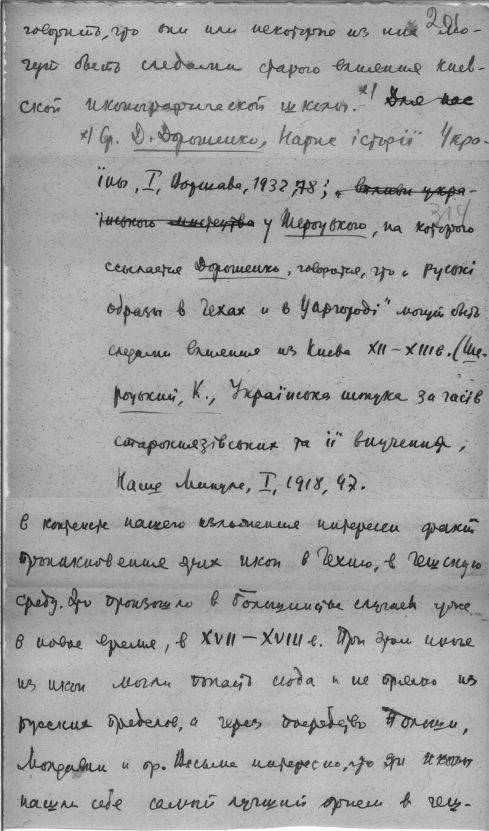 говорить, что они или некоторые из них мо-
гут быть следами старого влияния киев-
ской иконографической школы. *) Для нас
*) Ср. Д. Дорошенко, Нарис історії Укра-
їны, I, Варшава, 1932, 78; „ впливи укра-
їнського мистецтва у Шероцького, на которого
314
ссылается Дорошенко, говорится, что „руські
образы в Чехах и в Царгороді" могут быть
следами влияния из Киева XII–XIII в. (Ше-
роцький, К., Українська штука за часів
старокнязівських та її вивчення,
Наше Минуле, I, 1918, 97.
в контексте нашего изложения интересен факт
проникновения этих икон в Чехию, в чешскую
среду. Это произошло в большинстве случаев уже
в новое время, в XVII–XVIII в. При этом иные
из икон могли попасть сюда и не прямо из
русских пределов, а через посредство Польши,
Молдавии и др. Весьма интересно, что эти иконы
нашли себе самый лучший прием в чеш-